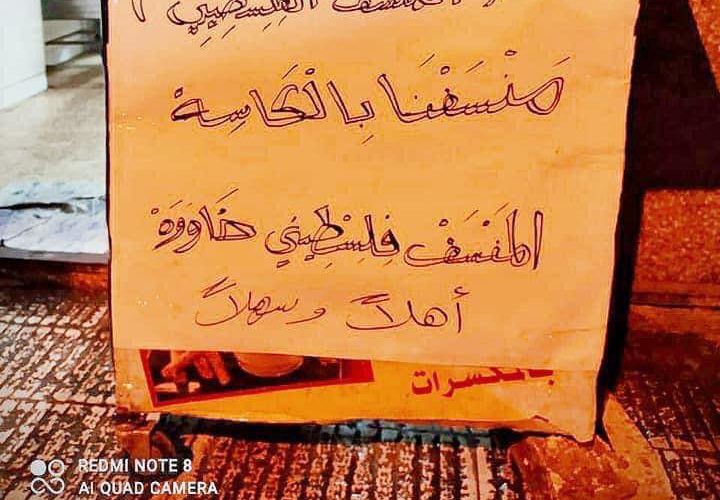 المنسف الفلسطيني
مَنْسَفْنَا بِالْكَاسِهْ
المَنْسَفْ فِلِسْطِيني خَاوَوَهْ
أهلاً و سهلاً
بالمكسرات
REDMI NOTE 8
AI QUAD CAMERA